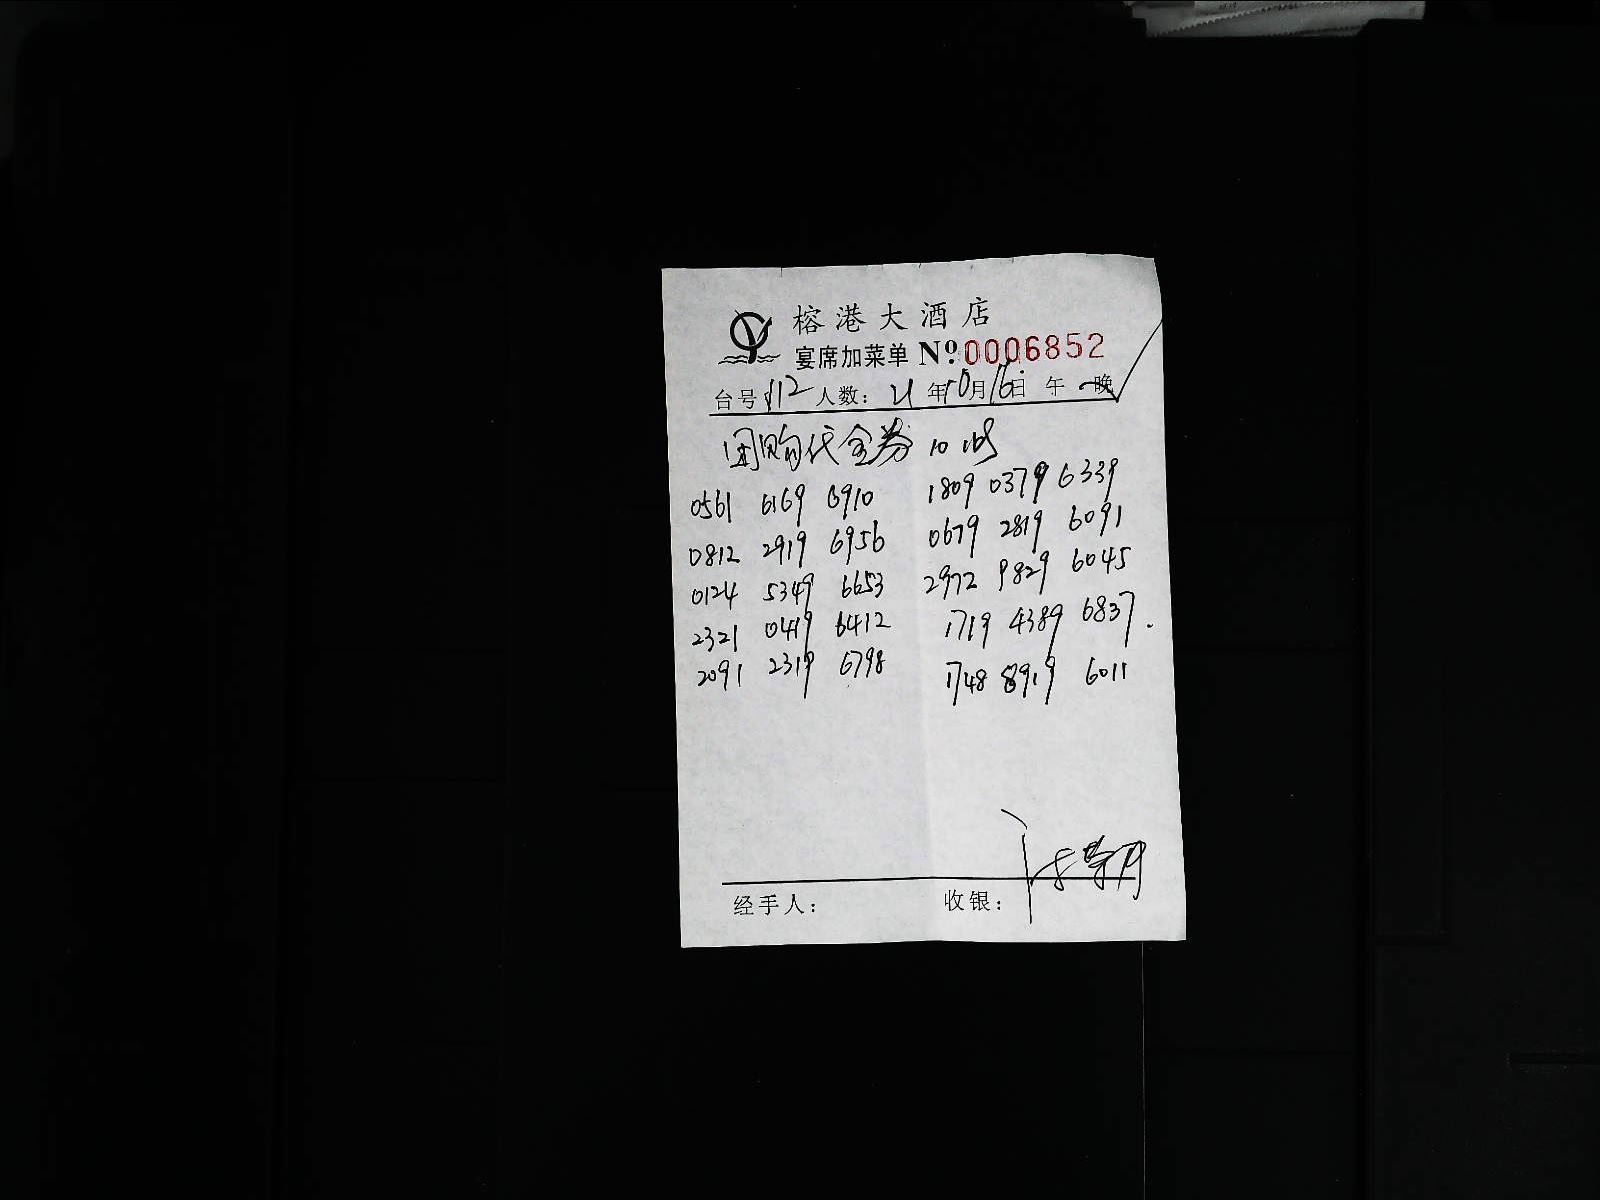 榕港大酒店
宴席加菜单 Nº 0006852
台号 112 人数： 21 年 10 月 16 日 午 晚
团购代金券 10张
0561 6169 6910 1809 0379 6339
0812 2919 6956 0679 2819 6091
0124 5349 6653 2972 9829 6045
2321 0419 6412 1719 4389 6837.
2091 2319 6798 1748 8919 6011
经手人： 收银：